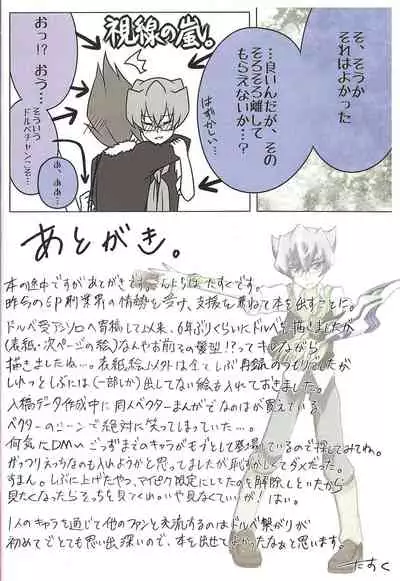 視線の嵐。
そ、そうか
それはよかった
…良いんだが、その
そろそろ離して
もらえないか…?
はずかしい…
おっ!?おう…
そういう
ドルベチャンこそ…
あ、ああ…
あとがき。
本の途中ですがあとがきです。こんにちは たすくです。
昨今の印刷業界の情勢を受け、支援を兼ねて本を出すことに。
ドルベ受アンソロへ寄稿して以来、6年ぶりくらいにドルベを描きましたが
(表紙・次ページの絵)なんやお前その髪型!?ってキレながら
描きましたね…。表紙、絵コメントは全てしぶ再録のつもりでしたが
しれっとしぶには(一部しか)出してない絵も入れておきました。
入稿データ作成中に同人ベクターまんがでなのはが買えている
ベクターのシーンで絶対に笑ってしまっていた…。
何気にDM〜ごっずまでのキャラがモブとして登場しているので探してみてね。
がっつりえっちなのも入れようかと思ってましたが恥ずかしくてダメだった。
すまん。しぶに上げたやつ、マイピク限定にしてたのを解除しといたから
見たくなったらそっちを見てくれ。いや見なくていいが!はい。
1人のキャラを通じて他のファンと交流するのはドルベ繋がりが
初めてでとても思い出深いので、本を出せてよかったなぁと思います。
たすく